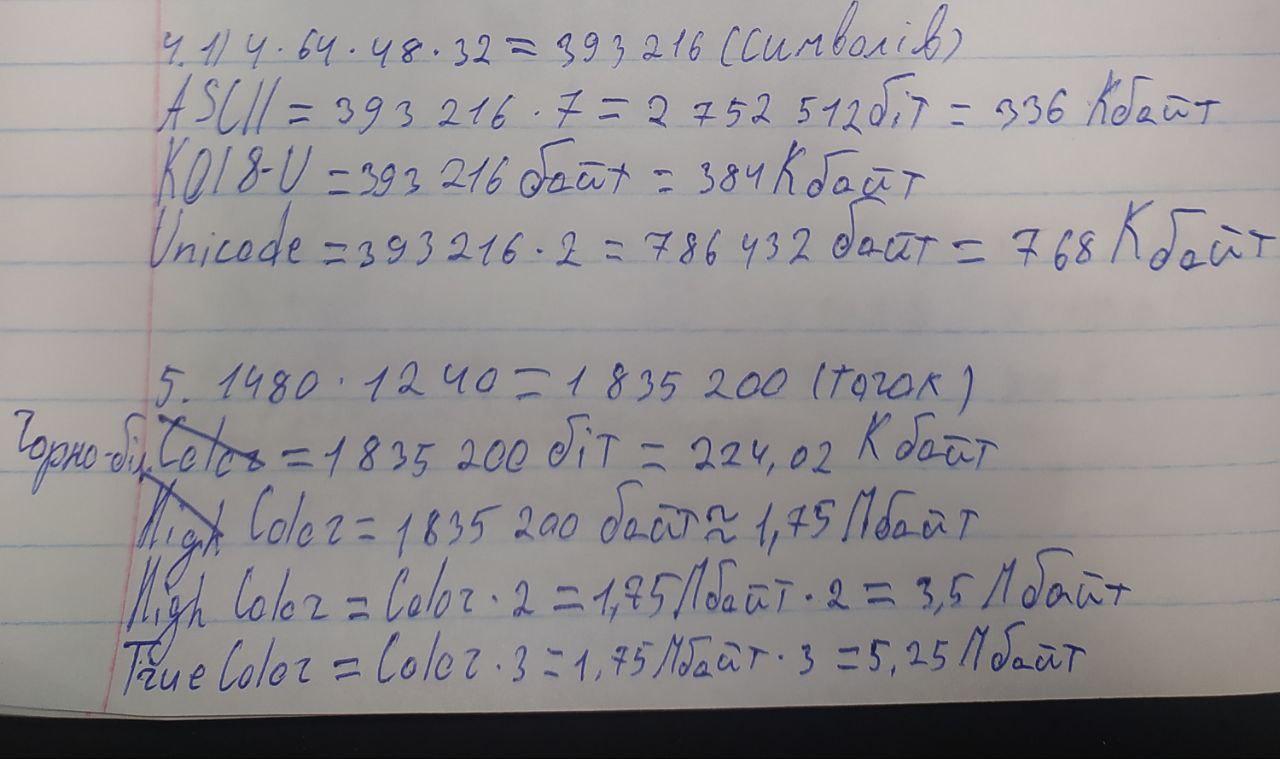 4.1) 4 · 64 · 48 · 32 = 393 216 (символів)
ASCII = 393 216 · 7 = 2 752 512 біт = 336 Кбайт
KOI8-U = 393 216 байт = 384 Кбайт
Unicode = 393216 · 2 = 786 432 байт = 768 Кбайт
5. 1480 · 1240 = 1 835 200 (точок)
Чорно-біл. Color = 1 835 200 біт = 224,02 Кбайт
High Color = 1835 200 байт ≈ 1,75 Мбайт
High Color = Color · 2 = 1,75 Мбайт · 2 = 3,5 Мбайт
True Color = Color · 3 = 1,75 Мбайт · 3 = 5,25 Мбайт